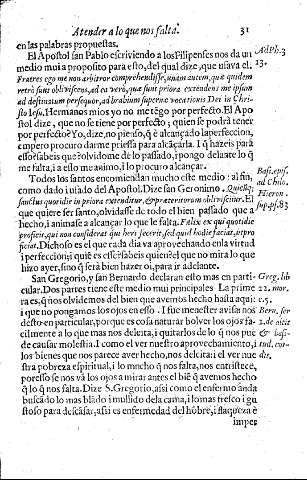 Atender a lo que nos falta. 31
en las palabras propuestas.
El Apostol san Pablo escriviendo a los Filipenses nos da un
medio mui a proposito para esto, del qual dize, que usava el.
Fratres ego me non arbitror comprehendisse, unum autem, quæ quidem
retrò sunt obliviscens, ad ea verò, quæ sunt priora extendens me ipsum
ad destinatum persequor, ad bravium supernæ vocationis Dei in Chri-
sto Iesu. Hermanos mios yo no me tẽgo por perfecto. El Apos
tol dize, que no se tiene por perfecto; quien se podrà tener
por perfecto? Yo, dize, no pienso, q̃ è alcançado la perfeccion,
empero procuro darme priessa para alcãçarla. I q̃ hazeis para
esso? sabeis que? olvidome de lo passado, i pongo delãte lo q̃
me falta, i a esso me animo, i lo procuro alcançar.
Todos los santos encomiendan mucho este medio: al fin,
como dado i usado del Apostol. Dize san Geronimo. Quisquis
sanctus quotidie in priora extenditur, & præteritorum obliviscitur. El
que quiere ser santo, olvidasse de todo el bien passado que a
hecho, i animase a alcançar lo que le falta. Felix ex qui quotidie
proficit, qui non considerat quid heri fecerit, sed quid hodie faciat, ut pro
ficiat. Dichoso es el que cada dia va aprovechando en la virtud
i perfeccion; i quiẽ es esse? sabeis quien? el que no mira lo que
hizo ayer, sino q̃ serà bien hazer oi, para ir adelante.
San Gregorio, y san Bernardo declaran esto mas en parti-
cular. Dos partes tiene este medio mui principales. La prime
ra es, q̃ nos olvidemos del bien que avemos hecho hasta aqui:
i que no pongamos los ojos en esso. I fue menester avisanos
desto en particular, porque es cosa natural bolver los ojos fa-
cilmente a lo que mas nos deleita, i quitarlos de lo q̃ nos pue
de causar molestia. I como el ver nuestro aprovechamiento, i
los bienes que nos parece aver hecho, nos deleita: i el ver nue
stra pobreza espiritual, i lo mucho q̃ nos falta, nos entristece,
por esso se nos vã los ojos a mirar antes el biẽ q̃ avemos hecho
q̃ lo q̃ nos falta. Dize S. Gregorio, assi como el enfermo ãnda
buscãdo lo mas blãdo i mullido de la cama, i lo mas fresco i gu
stoso para descãsar, assi es enfermedad del hõbre, i flaqueza è
imper
Ad Ph. 3
13.
Basi. epis.
ad Chilo.
Hieron.
sup. ps. 83
Greg. lib.
22. mor.
c. 5.